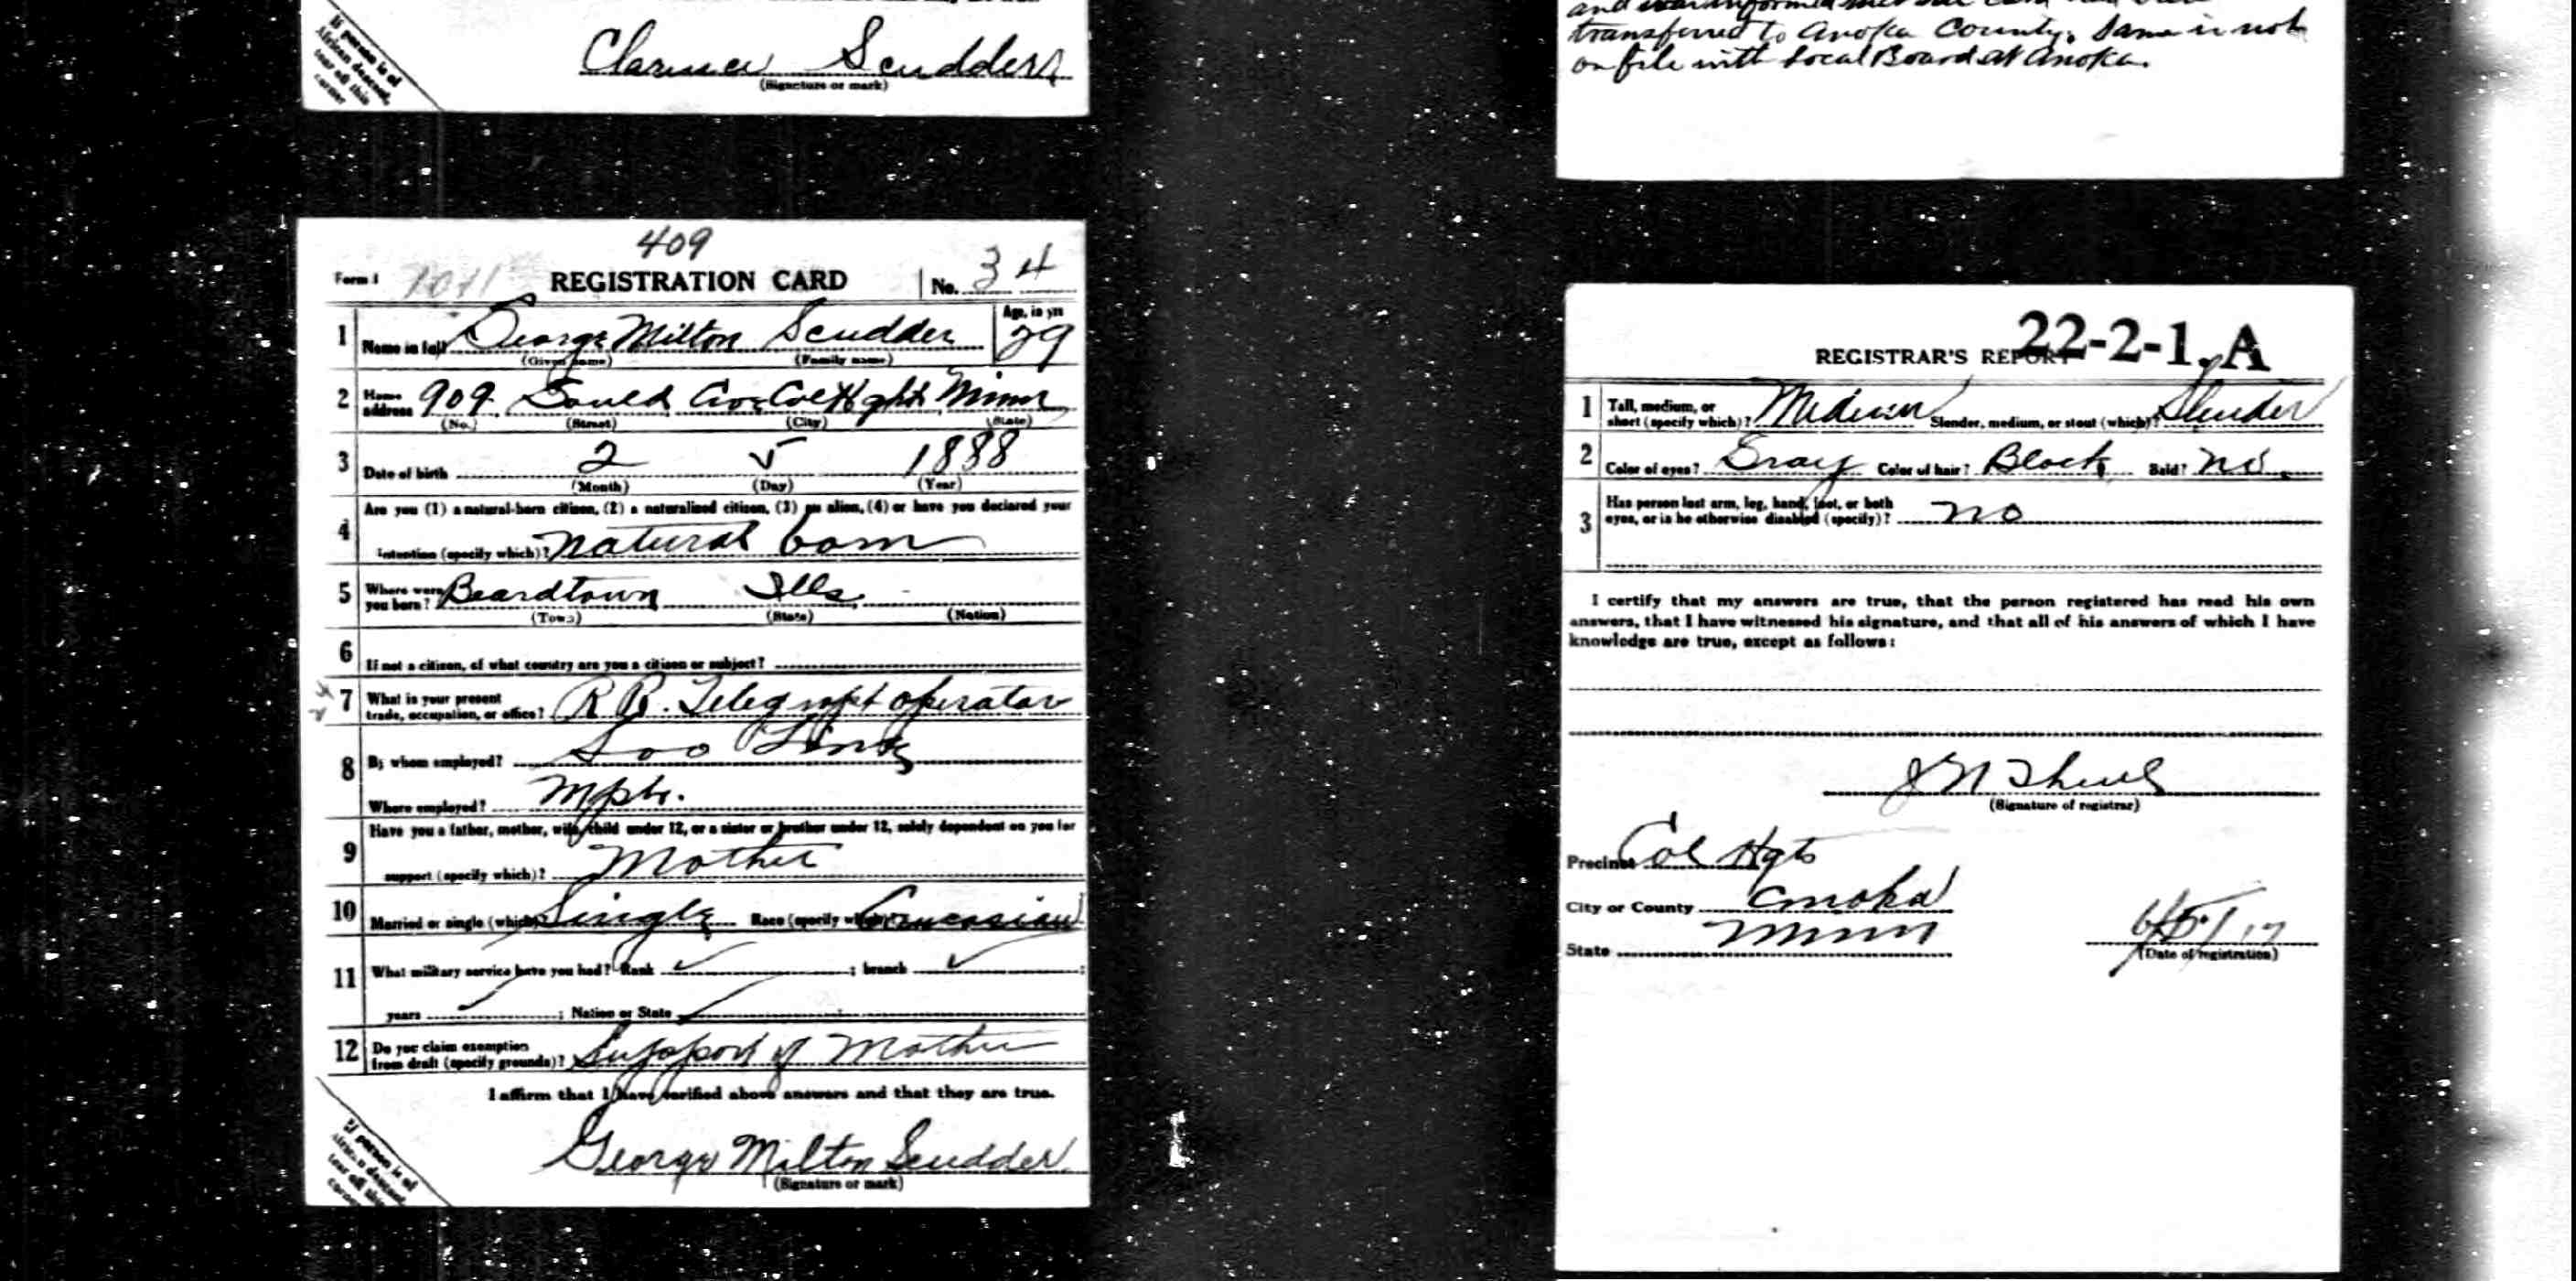 If person is of
African descent,
tear off this
corner
Clarence Scudder
(Signature or mark)
transferred to Anoka County. Same is not
on file with Local Board at Anoka.
409
Form 1 REGISTRATION CARD No. 34
1 Name in full George Milton Scudder Age, in yrs 29
(Given name) (Family name)
2 Home address 909 Gould Av. Col Hghts Minn
(No.) (Street) (City) (State)
3 Date of birth 2 5 1888
(Month) (Day) (Year)
4 Are you (1) a natural-born citizen, (2) a naturalized citizen, (3) an alien, (4) or have you declared your
intention (specify which)? natural born
5 Where were you born? Beardtown Ills
(Town) (State) (Nation)
6 If not a citizen, of what country are you a citizen or subject?
7 What is your present
trade, occupation, or office? R R. Telegraph operator
8 By whom employed? Soo Line
Where employed? Mpls.
9 Have you a father, mother, wife, child under 12, or a sister or brother under 12, solely dependent on you for
support (specify which)? Mother
10 Married or single (which)? Single Race (specify which)? Caucasian
11 What military service have you had? Rank ✓ ; branch ✓ ;
years ; Nation or State
12 Do you claim exemption
from draft (specify grounds)? Support of Mother
I affirm that I have verified above answers and that they are true.
George Milton Scudder
(Signature or mark)
If person is of
African descent,
tear off this
corner
22-2-1. A
REGISTRAR'S REPORT
1 Tall, medium, or
short (specify which)? Medium Slender, medium, or stout (which)? Slender
2 Color of eyes? Gray Color of hair? Black Bald? No.
3 Has person lost arm, leg, hand, foot, or both
eyes, or is he otherwise disabled (specify)? no
I certify that my answers are true, that the person registered has read his own
answers, that I have witnessed his signature, and that all of his answers of which I have
knowledge are true, except as follows:
(Signature of registrar)
Precinct Col Hgts
City or County Anoka
State Minn 6/5/17
(Date of registration)